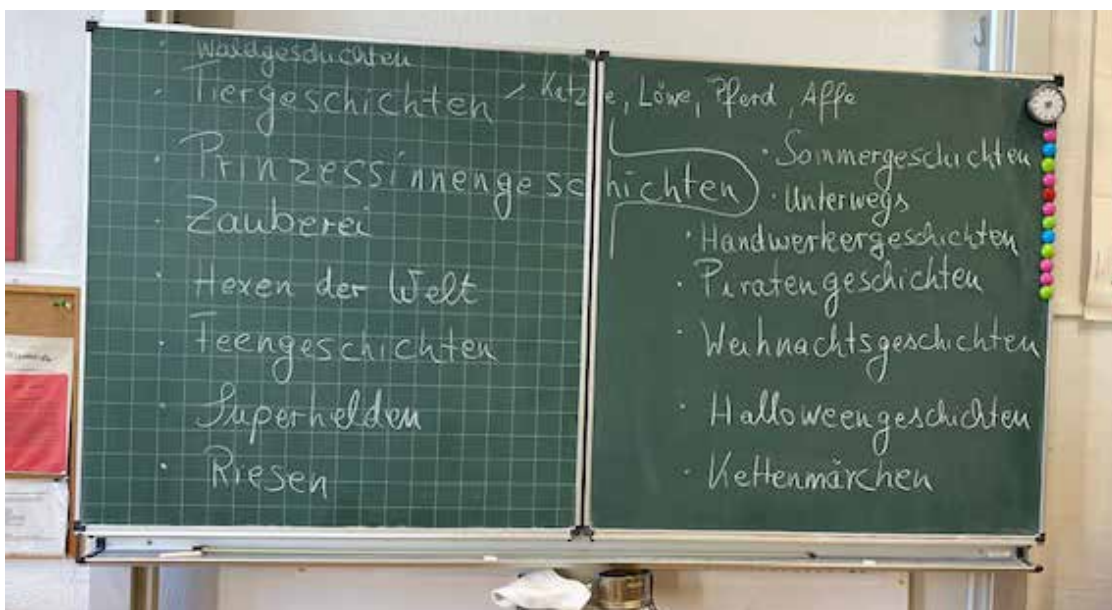 · Waldgeschichten
· Tiergeschichten / Katze, Löwe, Pferd, Affe
· Prinzessinnengeschichten
· Zauberei
· Hexen der Welt
· Feengeschichten
· Superhelden
· Riesen
· Sommergeschichten
· Unterwegs
· Handwerkergeschichten
· Piratengeschichten
· Weihnachtsgeschichten
· Halloweengeschichten
· Kettenmärchen